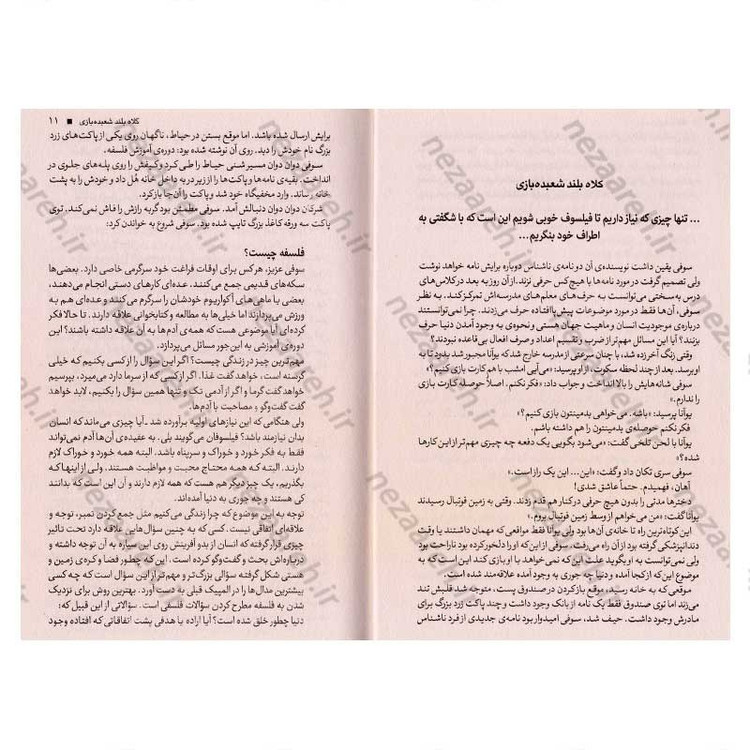 کلاه بلند شعبده‌بازی
... تنها چیزی که نیاز داریم تا فیلسوف خوبی شویم این است که با شگفتی به
اطراف خود بنگریم...
سوفی یقین داشت نویسنده‌ی آن دو نامه‌ی ناشناس دوباره برایش نامه خواهد نوشت
ولی تصمیم گرفت در مورد نامه‌ها با هیچ‌کس حرفی نزند. از آن روز به بعد در کلاس‌های
درس به‌سختی می‌توانست به حرف‌های معلم‌های مدرسه‌اش تمرکز کند. به نظر
سوفی، آن‌ها فقط در مورد موضوعات پیش پا افتاده حرف می‌زدند. چرا نمی‌توانستند
درباره‌ی موجودیت انسان و ماهیت جهان هستی و نحوه‌ی به وجود آمدن دنیا حرف
بزنند؟ آیا این مسائل مهم‌تر از ضرب و تقسیم اعداد و صرف افعال بی‌قاعده نبودند؟
وقتی زنگ آخر زده شد، با چنان سرعتی از مدرسه خارج شد که یوآنا مجبور شد بدود تا به
او برسد. بعد از چند لحظه سکوت، از او پرسید: «می‌آیی امشب با هم کارت بازی کنیم؟»
سوفی شانه‌هایش را بالا انداخت و جواب داد: «فکر نکنم. اصلاً حوصله‌ی کارت بازی
را ندارم.»
یوآنا پرسید: «باشه. می‌خواهی بدمینتون بازی کنیم؟»
فکر نکنم حوصله‌ی بدمینتون را هم داشته باشم.
یوآنا با لحن تلخی گفت: «می‌شود بگویی یک دفعه چه چیزی مهم‌تر از این کارها
شده؟»
سوفی سری تکان داد و گفت: «این... این یک راز است.»
آهان، فهمیدم. حتماً عاشق شدی!
دخترها مدتی را بدون هیچ حرفی در کنار هم قدم زدند. وقتی به زمین فوتبال رسیدند
یوآنا گفت: «من می‌خواهم از وسط زمین فوتبال بروم.»
این کوتاه‌ترین راه تا خانه‌ی آن‌ها بود ولی یوآنا فقط مواقعی که مهمان داشتند یا وقت
دندانپزشکی گرفته بود از آن راه می‌رفت. سوفی از این‌که او را دلخور کرده بود ناراحت بود
ولی نمی‌توانست به او بگوید علت این که نمی‌خواهد با او بازی کند این بود که به
موضوع این که از کجا آمده و دنیا چه جوری به وجود آمده علاقه‌مند شده است.
موقعی که به خانه رسید، موقع باز کردن در صندوق پست، متوجه شد قلبش تند
می‌زند اما توی صندوق فقط یک نامه از بانک وجود داشت و چند پاکت زرد بزرگ برای
مادرش وجود داشت. حیف شد، سوفی امیدوار بود نامه‌ی جدیدی از فرد ناشناس
کلاه بلند شعبده‌بازی ■ ۱۱
برایش ارسال شده باشد. اما موقع بستن در حیاط، ناگهان روی یکی از پاکت‌های زرد
بزرگ نام خودش را دید. روی آن نوشته شده بود: دوره‌ی آموزش فلسفه.
سوفی دوان دوان مسیر شنی حیاط را طی کرد و کیفش را روی پله‌های جلوی در
انداخت. بقیه‌ی نامه‌ها و پاکت‌ها را از زیر در به داخل خانه هُل داد و خودش را به پشت
خانه رساند. وارد مخفیگاه خود شد و پاکت را آن‌جا باز کرد.
شرکان دوان دوان دنبالش آمد. سوفی مطمئن بود گربه رازش را فاش نمی‌کند. توی
پاکت سه ورقه کاغذ بزرگ تایپ شده بود. سوفی شروع به خواندن کرد:
فلسفه چیست؟
سوفی عزیز، هر کس برای اوقات فراغت خود سرگرمی خاصی دارد. بعضی‌ها
سکه‌های قدیمی جمع می‌کنند، عده‌ای کارهای دستی انجام می‌دهند،
بعضی با ماهی‌های آکواریوم خودشان را سرگرم می‌کنند و عده‌ای هم به
ورزش می‌پردازند اما خیلی‌ها به مطالعه و کتابخوانی علاقه دارند. تا حالا فکر
کرده‌ای آیا موضوعی هست که همه‌ی آدم‌ها به آن علاقه داشته باشند؟ این
دوره‌ی آموزشی به این‌جور مسائل می‌پردازد.
مهم‌ترین چیز در زندگی چیست؟ اگر این سؤال را از کسی بکنیم که خیلی
گرسنه است، خواهد گفت غذا. اگر از کسی که از سرما دارد می‌میرد، بپرسیم
خواهد گفت گرما و اگر از آدمی تک و تنها همین سؤال را بکنیم، لابد خواهد
گفت گفت‌وگو و مصاحبت با آدم‌ها.
ولی هنگامی که این نیازهای اولیه برآورده شد ـ آیا چیزی می‌ماند که انسان
بدان نیازمند باشد؟ فیلسوفان می‌گویند بلی. به عقیده‌ی آن‌ها آدم نمی‌تواند
فقط به فکر خورد و خوراک و سرپناه باشد. البته همه خورد و خوراک لازم
دارند. البته که همه محتاج محبت و مواظبت هستند. ولی از این‌ها که
بگذریم، یک چیز دیگر هم هست که همه لازم دارند و آن این است که بدانند
کی هستند و چه جوری به دنیا آمده‌اند.
توجه به این موضوع که چرا زندگی می‌کنیم مثل جمع کردن تمبر، توجه و
علاقه‌ای اتفاقی نیست. کسی که به چنین سؤال‌هایی علاقه دارد تحت تاثیر
چیزی قرار گرفته که انسان از بدو آفرینش روی این سیاره به آن توجه داشته و
درباره‌اش بحث و گفت‌وگو کرده است. این که چطور فضا و کره‌ی زمین و
هستی شکل گرفته سؤالی بزرگ‌تر و مهم‌تر از این سؤال است که چه کسی
بیشترین مدال‌ها را در المپیک قبلی به دست آورد. بهترین روش برای نزدیک
شدن به فلسفه مطرح کردن سؤالات فلسفی است. سؤالاتی از این قبیل که:
دنیا چطور خلق شده است؟ آیا اراده یا هدفی پشت اتفاقاتی که افتاده وجود
nezaareh.ir